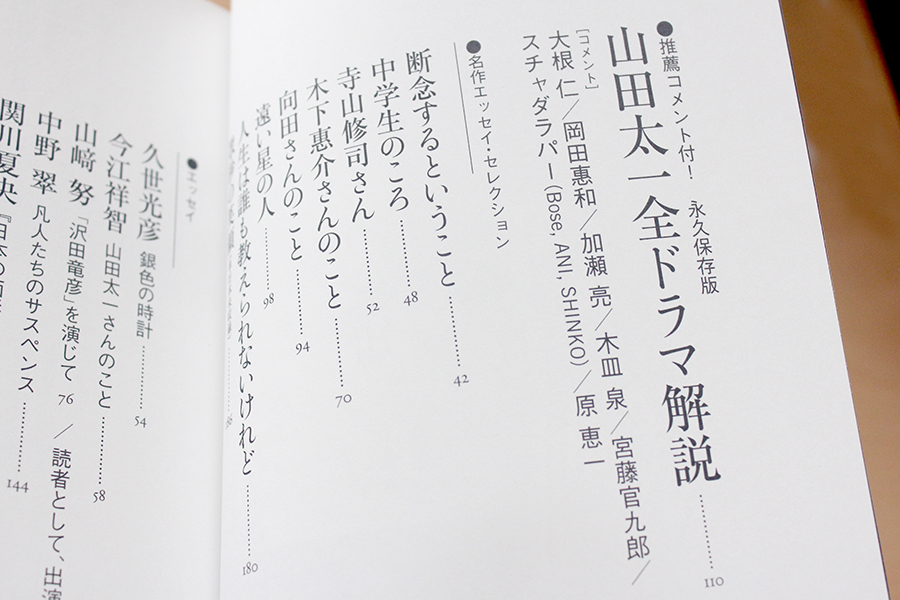 ●推薦コメント付! 永久保存版
山田太一全ドラマ解説……110
[コメント]
大根 仁／岡田惠和／加瀬 亮／木皿 泉／宮藤官九郎／
スチャダラパー(Bose, ANI, SHINKO)／原 恵一
●名作エッセイ・セレクション
断念するということ……42
中学生のころ……48
寺山修司さん……52
木下惠介さんのこと……70
向田さんのこと……94
遠い星の人……98
人生は誰も教えられないけれど……180
●エッセイ
久世光彦 銀色の時計……54
今江祥智 山田太一さんのこと……58
山﨑 努 「沢田竜彦」を演じて 76 ／読者として、出演
中野 翠 凡人たちのサスペンス……144
関川夏央 『日本の面